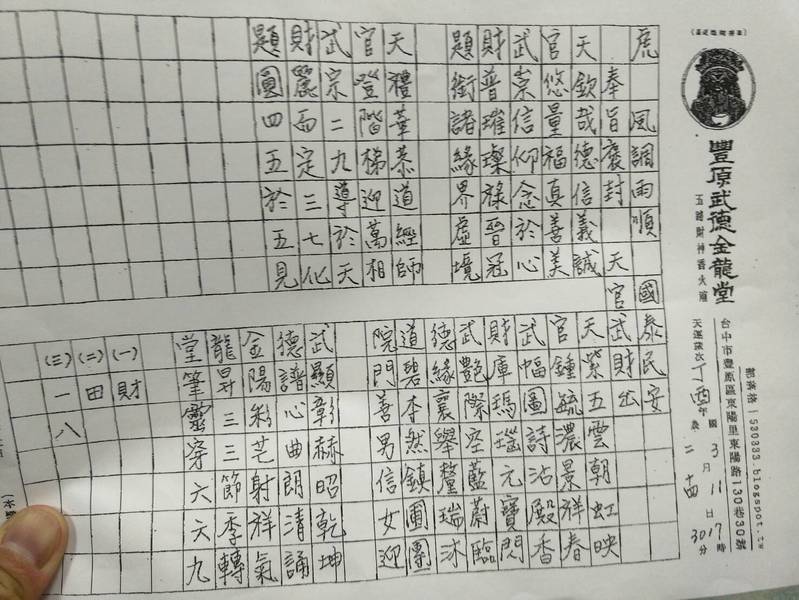 豐原武德金龍堂
台中市豐原區東陽里東陽路130巷30號
部落格 1530333.blogspot.tw
天運歲次丁酉年 國3月11日17時
農二 十四 30分
虎 風調雨順 國泰民安
奉旨褒封 天官武財出
天欽哉德信義誠
官悠量福真善美
武崇信仰念於心
財普璀璨祿晉冠
題銜諸緣界虛境
天禮華恭道經師
官登階梯迎萬相
武宗二九導於天
財麗而定三七化
題圓四五於五見
天紫五雲朝虹映
官鍾毓濃景祥春
武幅圖詩沾殿香
財庫瑪瑙元寶閃
武艷際空藍蔚臨
德緣襄舉釐瑞沐
道碧夲然鎮圃團
院門善男信女迎
武顯彰赫昭乾坤
德譜心曲朗清誦
金陽彩芒射祥氣
龍昇三三節季轉
堂筆靈穿六六九
(一)財
(二)田
(三)一八